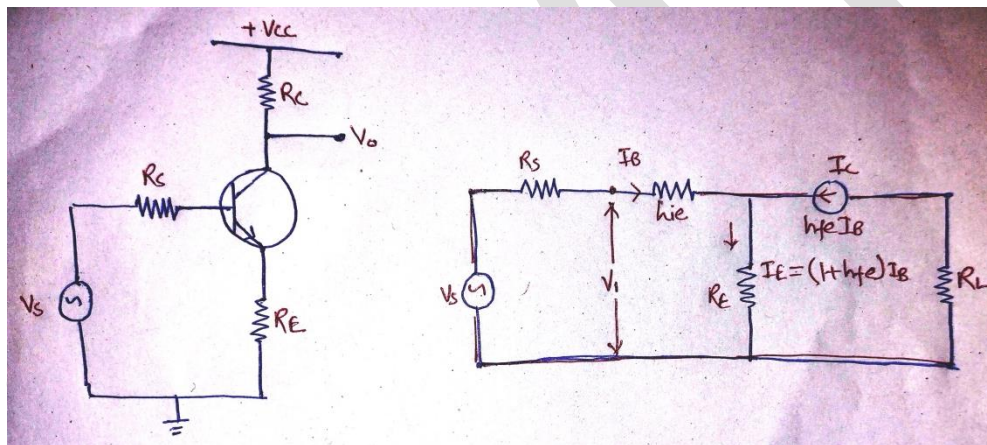 + Vcc
Rc
Vo
Rs
Vs
RE
Rs
IB
hie
Ic
hfeIB
V1
Vs
RE
IE=(1+hfe)IB
RL